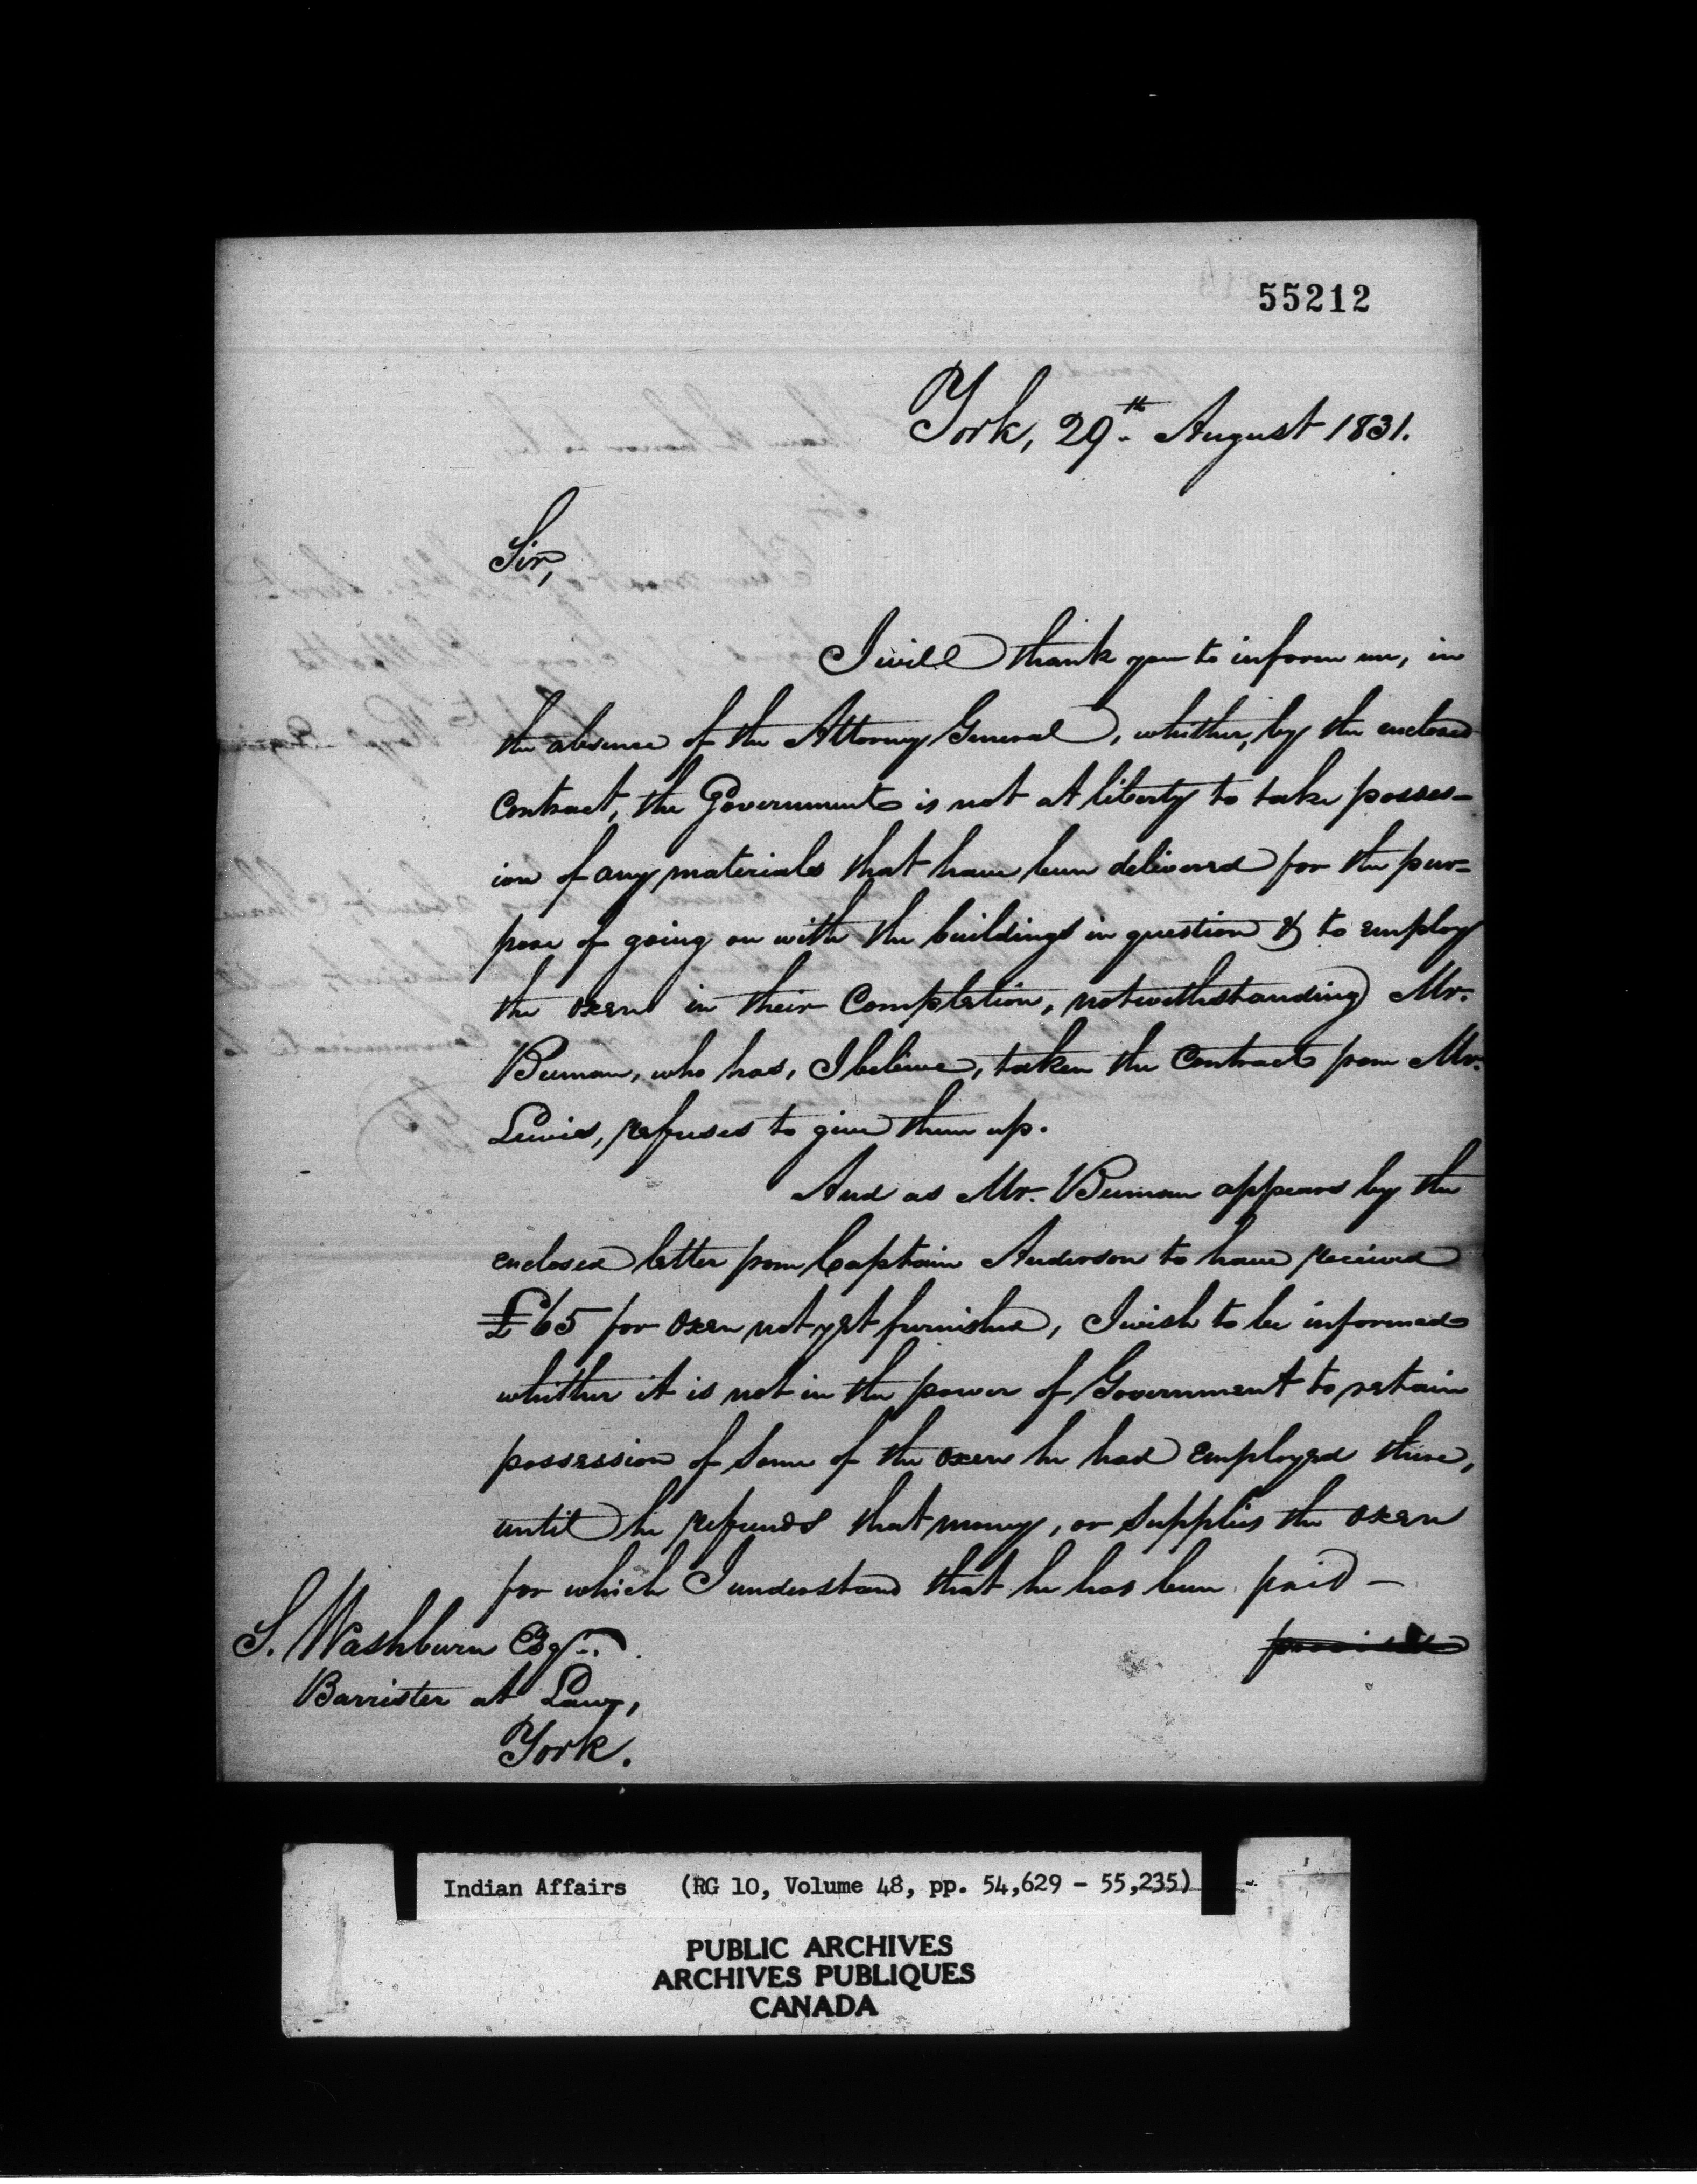 55212
York, 29th August 1831.
Sir,
I will thank you to inform me, in
the absence of the Attorney General, whether, by the enclosed
Contract, the Government is not at liberty to take posses-
ion of any materials that have been delivered for the pur-
pose of going on with the buildings in question & to employ
the oxen in their Completion, notwithstanding Mr.
Beman, who has, I believe, taken the Contract from Mr.
Lewis, refuses to give them up.
And as Mr. Beman appears by the
enclosed letter from Captain Anderson to have received
£65 for Oxen not yet furnished, I wish to be informed
whether it is not in the power of Government to retain
possession of some of the oxen he had employed there,
until he refunds that money, or supplies the oxen
for which I understand that he has been paid —
S. Washburn Esqr.
Barrister at Law,
York.
Indian Affairs (RG 10, Volume 48, pp. 54,629 - 55,235)
PUBLIC ARCHIVES
ARCHIVES PUBLIQUES
CANADA